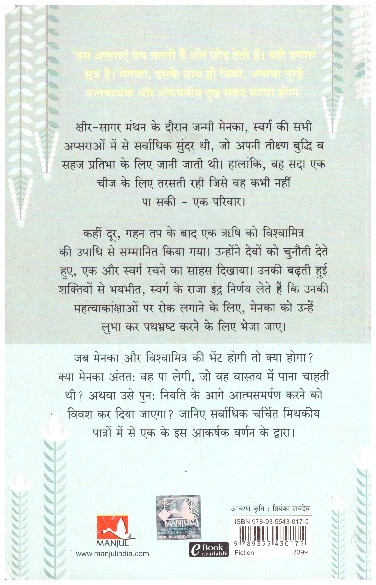 'हम अप्सराएं प्रेम करती हैं और छोड़ देती हैं। यही हमारा
सूत्र है। मेनका, इसके साथ ही जियो, अन्यथा तुम्हें
अनावश्यक और अकथनीय दुख सहन करना होगा।
क्षीर-सागर मंथन के दौरान जन्मी मेनका, स्वर्ग की सभी
अप्सराओं में से सर्वाधिक सुंदर थी, जो अपनी तीक्ष्ण बुद्धि व
सहज प्रतिभा के लिए जानी जाती थी। हालांकि, वह सदा एक
चीज के लिए तरसती रही जिसे वह कभी नहीं
पा सकी - एक परिवार।
कहीं दूर, गहन तप के बाद एक ऋषि को विश्वामित्र
की उपाधि से सम्मानित किया गया। उन्होंने देवों को चुनौती देते
हुए, एक और स्वर्ग रचने का साहस दिखाया। उनकी बढ़ती हुई
शक्तियों से भयभीत, स्वर्ग के राजा इंद्र निर्णय लेते हैं कि उनकी
महत्वाकांक्षाओं पर रोक लगाने के लिए, मेनका को उन्हें
लुभा कर पथभ्रष्ट करने के लिए भेजा जाए।
जब मेनका और विश्वामित्र की भेंट होगी तो क्या होगा?
क्या मेनका अंततः वह पा लेगी, जो वह वास्तव में पाना चाहती
थी? अथवा उसे पुनः नियति के आगे आत्मसमर्पण करने को
विवश कर दिया जाएगा? जानिए सर्वाधिक चर्चित मिथकीय
पात्रों में से एक के इस आकर्षक वर्णन के द्वारा।
आवरण कृति : प्रियंका सचदेव
ISBN 978-93-5543-017-5
MANJUL
www.manjulindia.com
MANJUL
eBook
available
9789355430175
Fiction
₹399